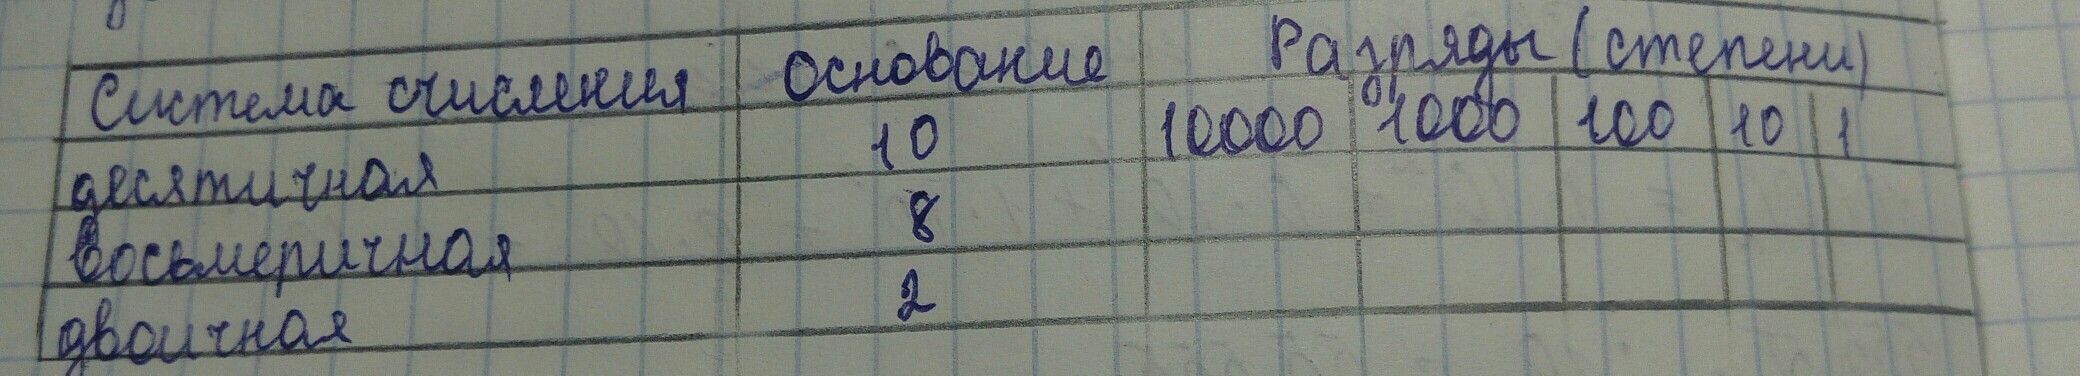 Система счисления Основание Разряды (степени)
десятичная 10 10000 1000 100 10 1
восьмеричная 8
двоичная 2